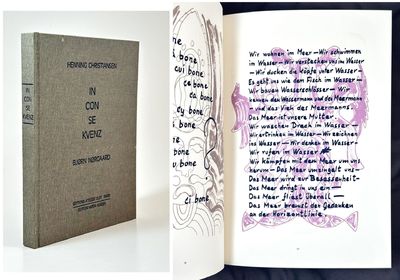 HENNING CHRISTIANSEN
IN
CON
SE
KVENZ
BJØRN NØRGAARD
IN
CON
SE
KVENZ
bone
a bone
cui bone
ce bone
ca bone
bone
cy bone
bone
bone
ci bone
Wir wohnen im Meer — Wir schwimmen
im Wasser — Wir verstecken uns im Wasser
— Wir ducken die Köpfe unter Wasser —
Es geht uns wie dem Fisch im Wasser —
Wir bauen Wasserschlösser — Wir
kennen den Wassermann und das Meermann
— und das Vieh des Meermanns.
Das Meer ist unsere Mutter.
Wir waschen Dreck im Wasser —
Wir ertrinken im Wasser — Wir zeichnen
ins Wasser — Wir denken im Wasser —
Wir rufen im Wasser
Wir kämpfen mit dem Meer um uns
herum — Das Meer umzingelt uns —
Das Meer wird zur Besessenheit —
Das Meer dringt in uns ein —
Das Meer fliest überall —
Das Meer braust den Gedanken
an der Horizontlinie.